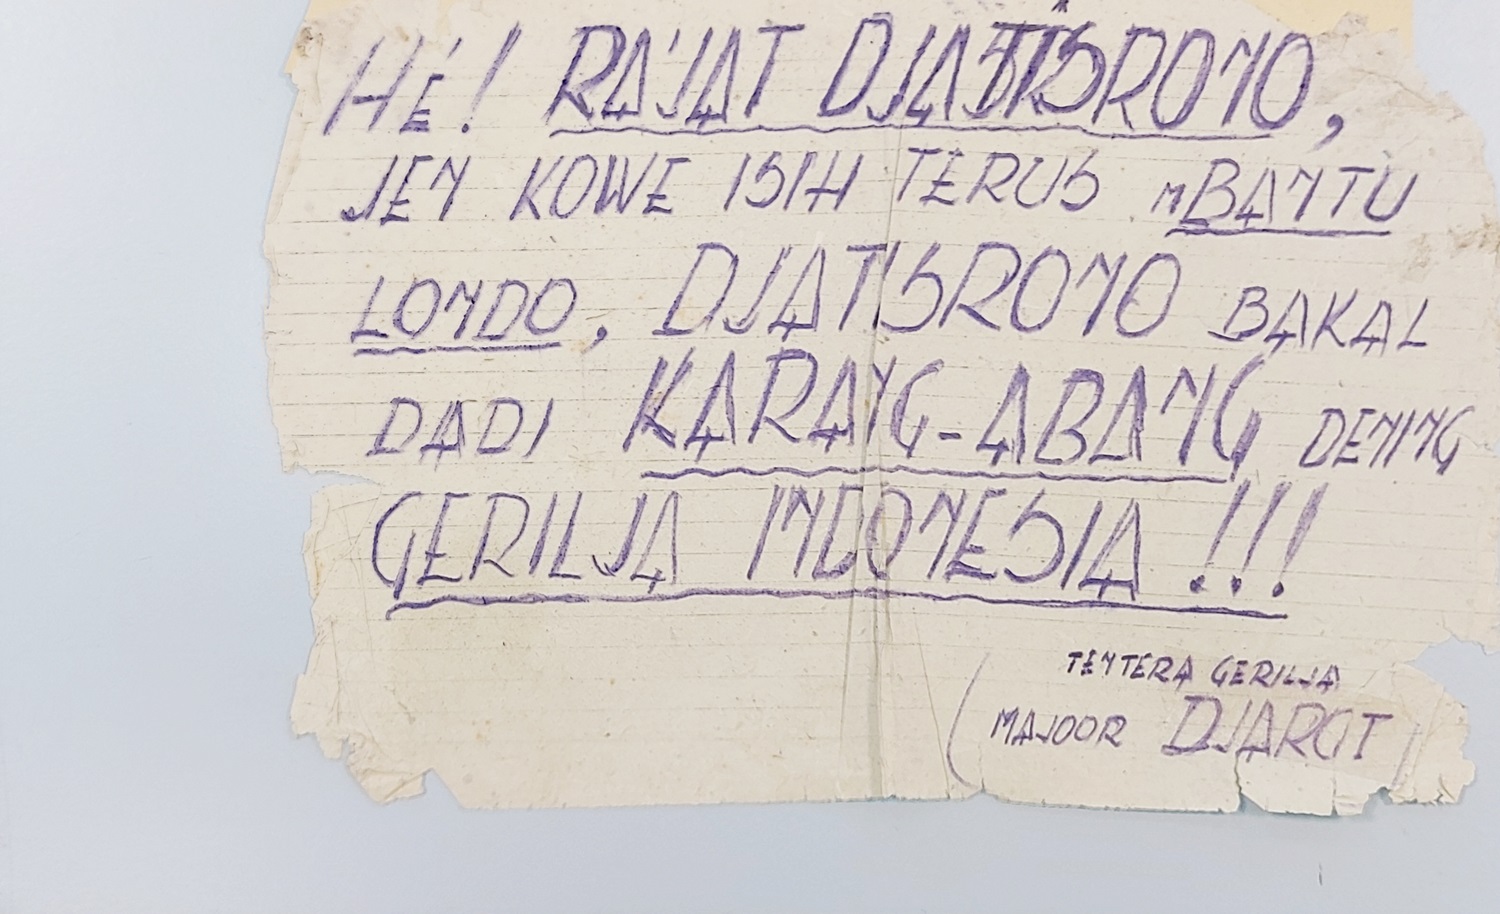 HÉ! RA'JAT DJATISRONO,
JEN KOWE ISIH TERUS MBANTU
LONDO, DJATISRONO BAKAL
DADI KARANG-ABANG DENING
GERILJA INDONESIA!!!
TENTERA GERILJA
(MAJOOR DJAROT)